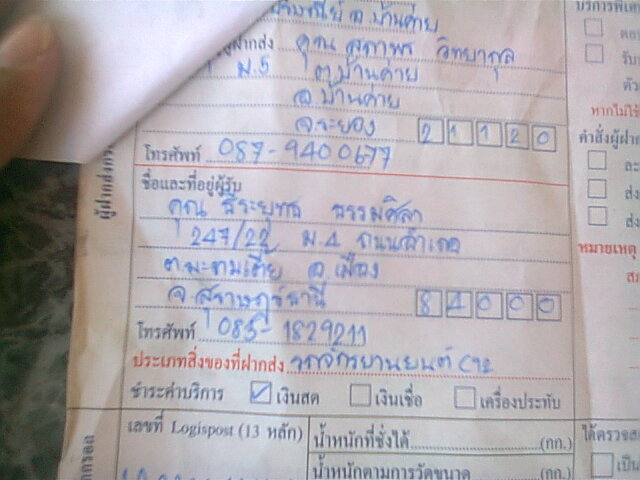 อ.บ้านค่าย
บริการพิเศษ
คุณ สุภาพร วิทยากุล
ม.5 ต.บ้านค่าย
อ.บ้านค่าย
จ.ระยอง 21120
โทรศัพท์ 087-9400677
ชื่อและที่อยู่ผู้รับ
คุณ ธีระยุทธ ธรรมศิลา
247/22 ม.4 ถนน
ต.มะขามเตี้ย อ.เมือง
จ.สุราษฎร์ธานี 84000
โทรศัพท์ 085-1829211
ประเภทสิ่งของที่ฝากส่ง รถจักรยานยนต์
ชำระค่าบริการ เงินสด เงินเชื่อ เครื่องประทับ
เลขที่ Logispost (13 หลัก) น้ำหนักที่ชั่งได้ (กก.)
น้ำหนักตามการวัดขนาด (กก.)
หากไม่ใช้
คำสั่งผู้ฝาก
ส่ง
ส่ง
หมายเหตุ
ได้ตรวจส
เป็น